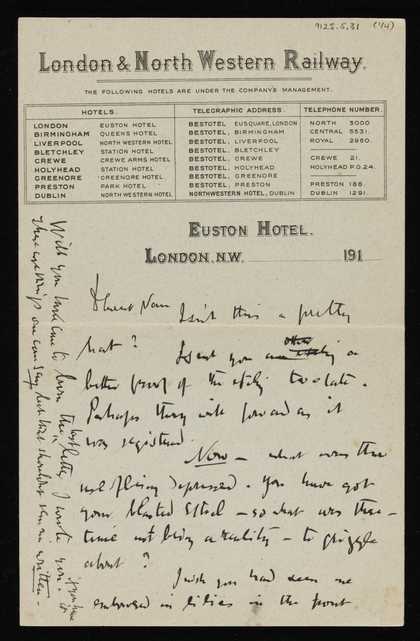 9125.5.31 (14)
London & North Western Railway.
THE FOLLOWING HOTELS ARE UNDER THE COMPANY'S MANAGEMENT.
HOTELS. TELEGRAPHIC ADDRESS. TELEPHONE NUMBER.
LONDON EUSTON HOTEL BESTOTEL, EUSQUARE, LONDON NORTH 3000
BIRMINGHAM QUEENS HOTEL BESTOTEL, BIRMINGHAM CENTRAL 5531.
LIVERPOOL NORTH WESTERN HOTEL BESTOTEL, LIVERPOOL ROYAL 2960.
BLETCHLEY STATION HOTEL BESTOTEL, BLETCHLEY
CREWE CREWE ARMS HOTEL BESTOTEL, CREWE CREWE 21.
HOLYHEAD STATION HOTEL BESTOTEL, HOLYHEAD HOLYHEAD P.O. 24.
GREENORE GREENORE HOTEL BESTOTEL, GREENORE
PRESTON PARK HOTEL BESTOTEL, PRESTON PRESTON 186.
DUBLIN NORTH WESTERN HOTEL NORTHWESTERN HOTEL, DUBLIN DUBLIN 1291.
EUSTON HOTEL.
LONDON. N.W. 191
Dearest Nan Isn't this a pretty
hat? I sent you an other
better proof of the too late.
Perhaps they will forward as it
was registered
Now – what was the
use of being depressed. You have got
your blasted – so what was the –
time not being a reality – to giggle
about?
I wish you had seen me
embraced in lilies in the front
Will you to burn the last letter I wrote you.
There are things one can say but that shouldn't be written –